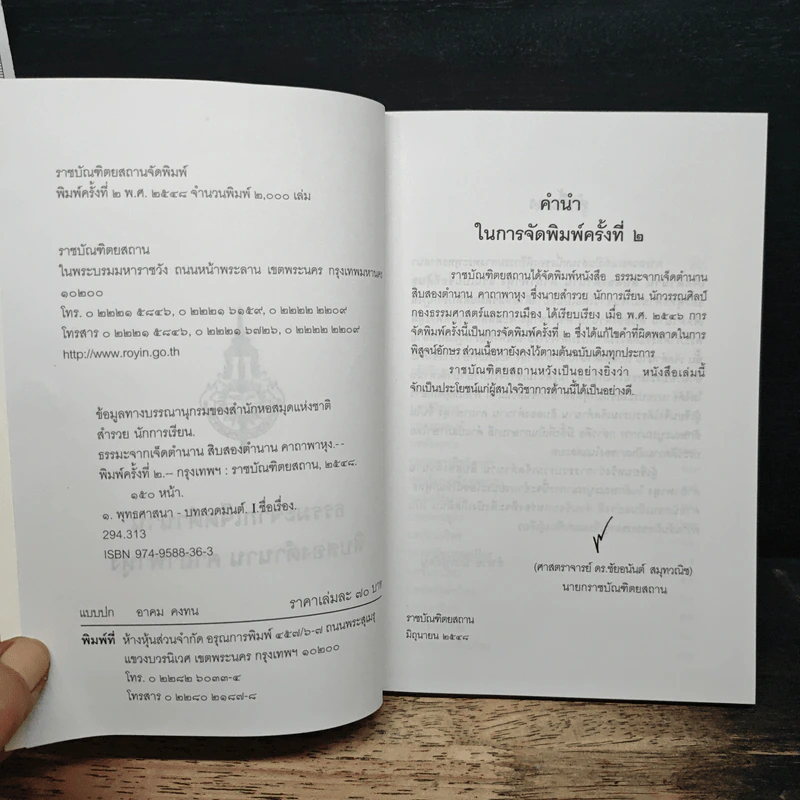 ราชบัณฑิตยสถานจัดพิมพ์
พิมพ์ครั้งที่ ๒ พ.ศ. ๒๕๔๘ จำนวนพิมพ์ ๒,๐๐๐ เล่ม
ราชบัณฑิตยสถาน
ในพระบรมมหาราชวัง ถนนหน้าพระลาน เขตพระนคร กรุงเทพมหานคร
๑๐๒๐๐
โทร. ๐ ๒๒๒๑ ๕๘๔๖, ๐ ๒๒๒๑ ๖๑๕๙, ๐ ๒๒๒๒ ๒๒๐๙
โทรสาร ๐ ๒๒๒๑ ๕๘๔๖, ๐ ๒๒๒๑ ๖๗๒๖, ๐ ๒๒๒๒ ๒๒๐๙
http://www.royin.go.th
ข้อมูลทางบรรณานุกรมของสำนักหอสมุดแห่งชาติ
สำรวย นักการเรียน.
ธรรมะจากเจ็ดตำนาน สิบสองตำนาน คาถาพาหุง.--
พิมพ์ครั้งที่ ๒.-- กรุงเทพฯ : ราชบัณฑิตยสถาน, ๒๕๔๘.
๑๕๐ หน้า.
๑. พุทธศาสนา - บทสวดมนต์. I.ชื่อเรื่อง.
294.313
ISBN 974-9588-36-3
ราคาเล่มละ ๗๐ บาท
แบบปก อาคม คงทน
พิมพ์ที่ ห้างหุ้นส่วนจำกัด อรุณการพิมพ์ ๔๕๗/๖-๗ ถนนพระสุเมรุ
แขวงบวรนิเวศ เขตพระนคร กรุงเทพฯ ๑๐๒๐๐
โทร. ๐ ๒๒๘๒ ๖๐๓๓-๔
โทรสาร ๐ ๒๒๘๐ ๒๑๘๗-๘
คำนำ
ในการจัดพิมพ์ครั้งที่ ๒
ราชบัณฑิตยสถานได้จัดพิมพ์หนังสือ ธรรมะจากเจ็ดตำนาน
สิบสองตำนาน คาถาพาหุง ซึ่งนายสำรวย นักการเรียน นักวรรณศิลป์
กองธรรมศาสตร์และการเมือง ได้เรียบเรียง เมื่อ พ.ศ. ๒๕๔๖ การ
จัดพิมพ์ครั้งนี้เป็นการจัดพิมพ์ครั้งที่ ๒ ซึ่งได้แก้ไขคำที่ผิดพลาดในการ
พิสูจน์อักษร ส่วนเนื้อหายังคงไว้ตามต้นฉบับเดิมทุกประการ
ราชบัณฑิตยสถานหวังเป็นอย่างยิ่งว่า หนังสือเล่มนี้
จักเป็นประโยชน์แก่ผู้สนใจวิชาการด้านนี้ได้เป็นอย่างดี.
(ศาสตราจารย์ ดร.ชัยอนันต์ สมุทวณิช)
นายกราชบัณฑิตยสถาน
ราชบัณฑิตยสถาน
มิถุนายน ๒๕๔๘